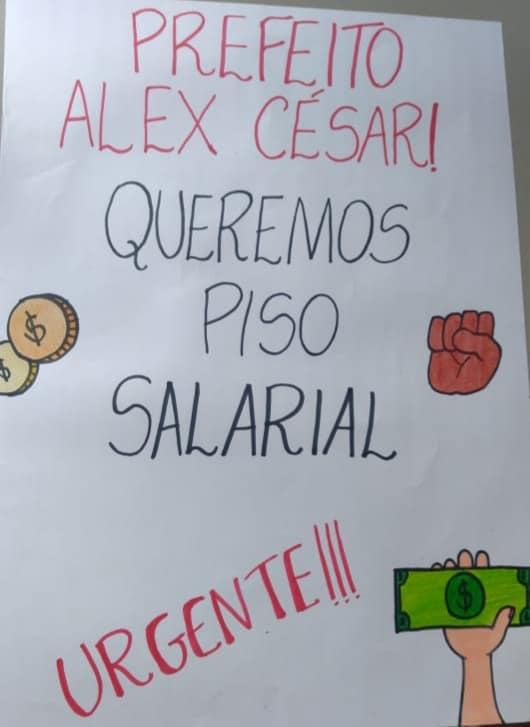 PREFEITO
ALEX CÉSAR!
QUEREMOS
PISO
SALARIAL
$
$
URGENTE!!!
$